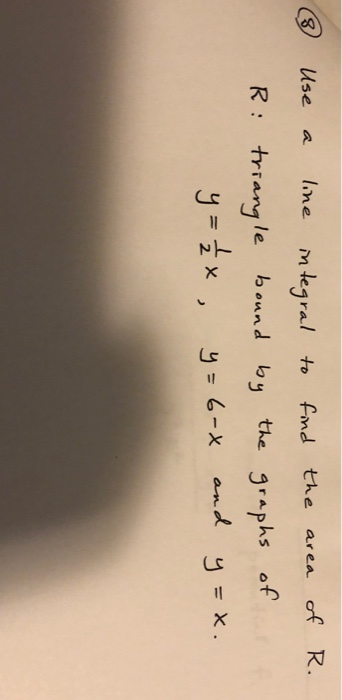 ⑧ Use a line integral to find the area of R.
R: triangle bound by the graphs of
y = 1/2 x, y = 6-x and y = x.